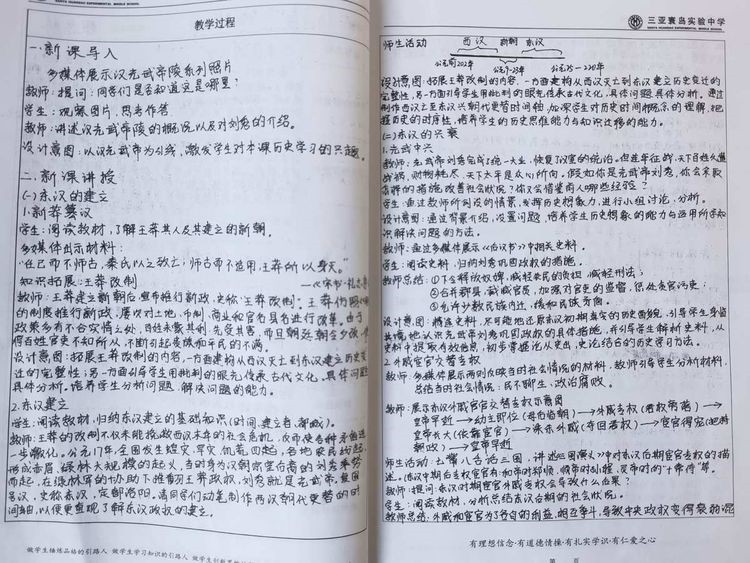 教学过程
一.新课导入
多媒体展示汉光武帝陵系列照片
教师:提问:同学们是否知道这是哪里?
学生:观察图片,思考作答
教师:讲述汉光武帝陵的概况以及对刘秀的介绍。
设计意图:以汉光武帝为引线,激发学生对本课历史学习的兴趣。
二.新课讲授
(一)东汉的建立
1.新莽篡汉
学生:阅读教材,了解王莽其人及其建立的新朝。
多媒体出示材料:
“任己而不师古,秦氏以之致亡;师古而不适用,王莽所以身灭。”
知识拓展:王莽改制
教师:王莽建立新朝后宣布推行新政,史称“王莽改制”。王莽仿照
的制度推行新政,屡次对土地、币制、商业和官名县名进行改革。由于
政策多有不合实情之处,百姓未蒙其利,先受其害,而且朝廷朝令夕改,使
得百姓官吏不知所从,不断引起贵族和平民的不满。
设计意图:拓展王莽改制的内容,一方面建构从西汉灭亡到东汉建立历史变
迁的完整性;另一方面引导学生用批判的眼光传承古代文化。具体问题
具体分析。培养学生分析问题、解决问题的能力。
2.东汉建立
学生:阅读教材,归纳东汉建立的基础知识(时间、建立者、都城)。
教师:王莽的改制不仅未能挽救西汉末年的社会危机,反而使各种矛盾进
一步激化。公元17年,全国发生蝗灾、旱灾、饥荒四起,各地农民纷起,
形成赤眉、绿林大规模的起义,当时身为汉朝宗室的刘秀乘势
而起,在绿林军的协助下推翻王莽政权,刘秀就是光武帝,重建
名汉,史称东汉,定都洛阳。请同学们动笔制作两汉朝代更替的时
间轴,以便更直观了解东汉政权的建立。
做学生锤炼品格的引路人 做学生学习知识的引路人 做学生创新思维的
三亚寰岛实验中学
SANYA HUANDAO EXPERIMENTAL MIDDLE SCHOOL
师生活动
西汉 新朝 东汉
公元前202年 公元9-23年 公元25-220年
设计意图:拓展王莽改制的内容,一方面建构从西汉灭亡到东汉建立历史变迁的
完整性,另一方面引导学生用批判的眼光传承古代文化,具体问题具体分析。通过
制作西汉之至东汉兴朝代更替时间轴,加深学生对历史时间概念的理解,把
握历史的时序性,培养学生的历史思维能力与知识迁移的能力。
(二)东汉的兴衰
1.光武中兴
教师:光武帝刘秀完成了统一大业,恢复了汉室的统治。但连年征战,天下百姓久遭
战祸,财物耗尽,天下太平是众心所向,假如你是光武帝刘秀,你会采取
哪些措施改善社会状况?你又会借鉴前人哪些经验?
学生:通过教师所创设的情景,发挥历史想象力,进行小组讨论,分析。
设计意图:通过背景介绍,设置问题,培养学生历史想象的能力与运用所学知
识解决问题的方法。
教师:通过多媒体展示《后汉书》中相关史料。
学生:阅读史料,归纳刘秀巩固政权的措施。
教师总结:①下令释放奴婢,减轻农民的负担,减轻刑法;
②合并郡县,裁减官员,加强对官吏的监督,惩处贪官污吏;
③允许少数民族内迁,缓和民族矛盾。
设计意图:精选史料,尽可能地还原东汉初期真实的历史面貌,引导学生身临
其境地认识光武帝刘秀巩固政权的具体措施,并引导学生解析史料,从
史料中提取有效信息,初步掌握论从史出,史论结合的历史学习方法。
2.外戚宦官交替专权
教师:多媒体展示两则反映当时社会情况的材料,教师引导学生分析材料,
总结当时社会情况:民不聊生,政治腐败。
教师:展示东汉外戚宦官交替专权示意图
皇帝早逝→幼主即位(母后临朝)→外戚专权(君权旁落)→
皇帝长大(依靠宦官)→诛杀外戚(夺回君权)→宦官得宠(把持
朝政)→皇帝早逝
师生活动:去掌八百话三国,讲述《三国演义》中对东汉后期宦官专权的描
述。(东汉中期后专权宦官有:和帝时郑众,顺帝时孙程,灵帝时的“十常侍”等。
教师:提问:东汉时期宦官外戚专权会导致什么后果?
学生:阅读教材,分析总结东汉后期的社会状况。
教师总结:外戚和宦官为了各自的利益,相互争斗,导致中央政权变得衰弱混
有理想信念·有道德情操·有扎实学识·有仁爱之心
第 页